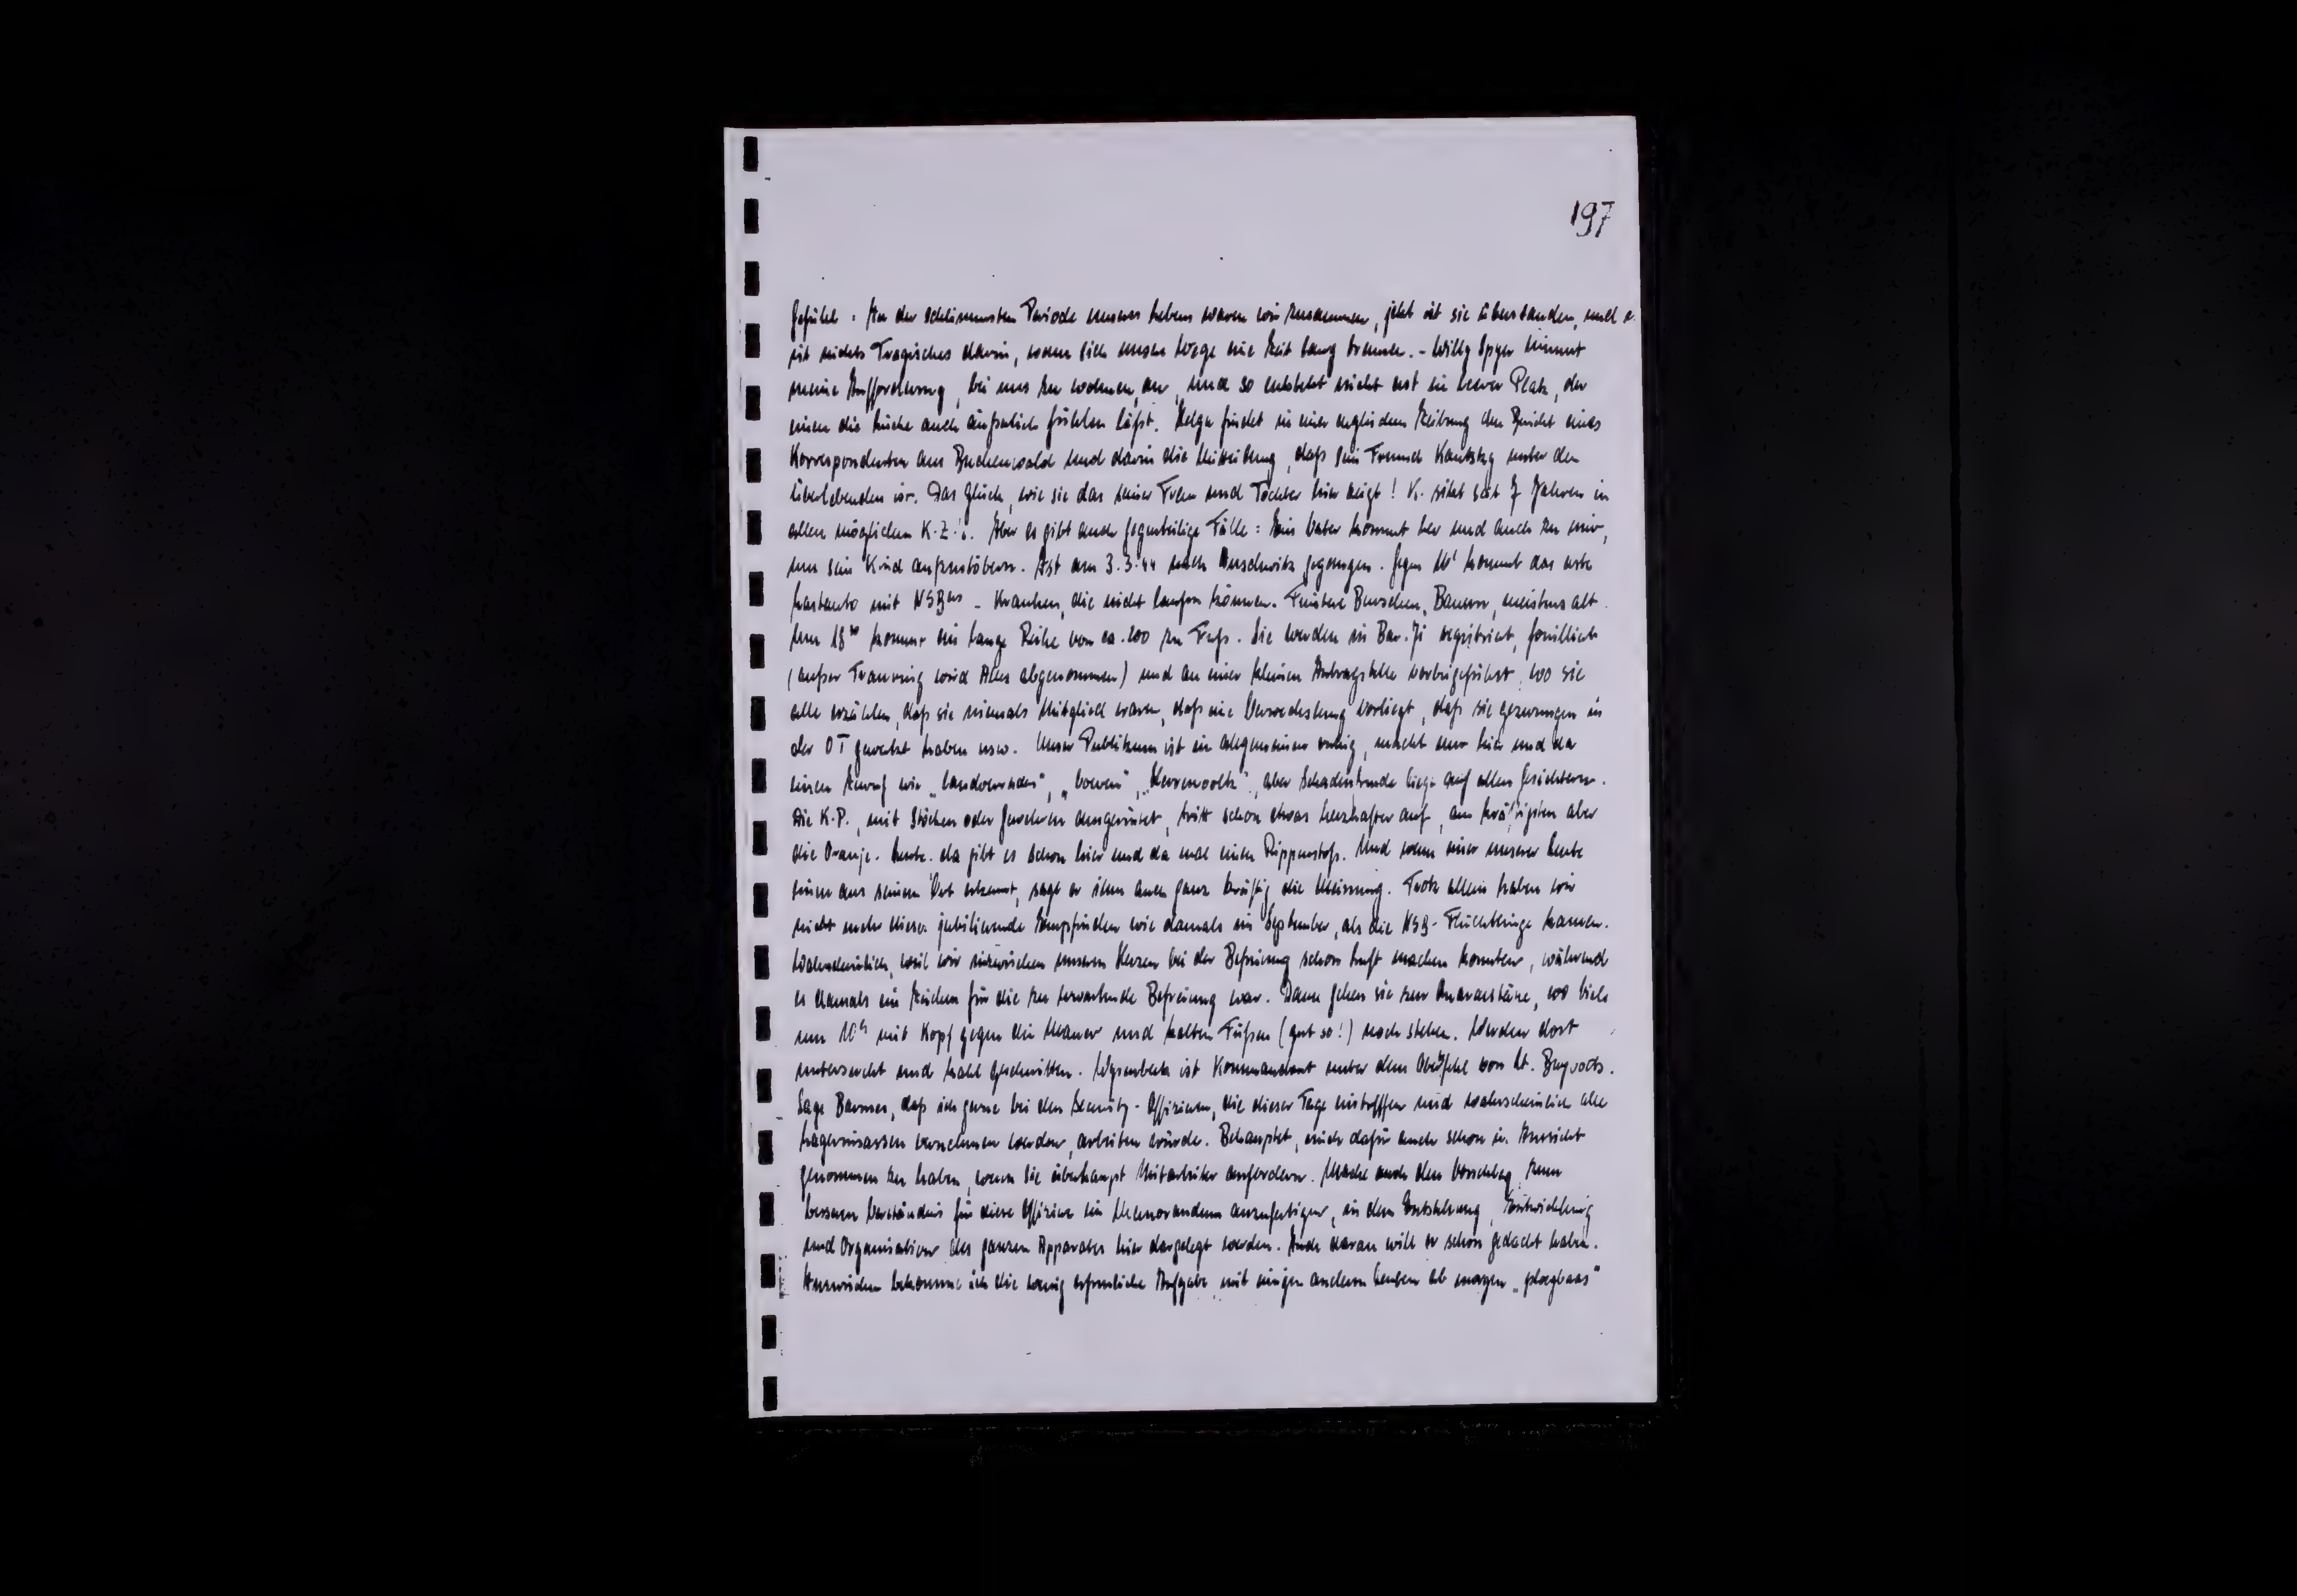 197
Gefühl: In der schlimmsten Periode unseres Lebens waren wir zusammen, jetzt ist sie überstanden, und e.
ist nichts Tragisches darin, wenn sich unsere Wege eine Zeit lang trennen. - Willy Spyer nimmt
meine Aufforderung, bei uns zu wohnen, an, und so entsteht nicht erst ein leerer Platz, der
einen die Lücke auch äußerlich fühlen läßt. Helga findet in einer englischen Zeitung den Bericht eines
Korrespondenten aus Buchenwald und darin die Mitteilung, daß sein Freund Kautsky unter den
Überlebenden ist. Das Glück, wie sie das seiner Frau und Tochter hier zeigt! K. sitzt seit 7 Jahren in
allen möglichen K.Z.'s. Aber es gibt auch gegenteilige Fälle: Ein Vater kommt her und auch zu mir,
um sein Kind aufzustöbern. Ist am 3.3.44 nach Auschwitz gegangen. Gegen kommt das erste
Lastauto mit NSBers - Kranken, die nicht laufen können. Finstere Burschen, Bauern, meistens alt
Um 18³⁰ kommt ein lange Reihe von ca. 200 zu Fuß. Sie werden in Bar. 71 registriert, fouilliert
(außer Trauring wird Alles abgenommen) und an einer kleinen Antragstelle vorbeigeführt, wo sie
alle erzählen, daß sie niemals Mitglied waren, daß eine Verwechslung vorliegt, daß sie gezwungen in
der OT gewerkt haben usw. Unser Publikum ist im allgemeinen ruhig, macht nur hier und da
einen Zuruf wie „landverrader", „boeven", „Herrenvolk", aber Schadenfreude liegt auf allen Gesichtern.
Die K.P., mit Stöcken oder Gewehren ausgerüstet, tritt schon etwas herzhafter auf, am kräftigsten aber
die Oranje-Leute. da gibt es schon hier und da mal einen Rippenstoß. Und wenn einer unserer Leute
einen aus seinem Ort erkennt, sagt er ihm auch ganz kräftig die Meinung. Trotz allem haben wir
nicht mehr dieses jubilierende Empfinden wie damals im September, als die NSB-Flüchtlinge kamen.
Wahrscheinlich, weil wir inzwischen unserem Herzen bei der Befreiung schon Luft machen konnten, während
es damals ein Zeichen für die zu erwartende Befreiung war. Dann gehen sie zur Quarantäne, wo viele
um 10ʰ mit Kopf gegen die Mauer und kalten Füßen (gut so!) noch stehen. Werden dort
untersucht und kahl geschnitten. ist Kommandant unter dem Oberbefehl von Lt.
Sage Barmes, daß ich gerne bei den Security-Offizieren, die dieser Tage eintreffen und wahrscheinlich alle
Lagerinsassen vernehmen werden, arbeiten würde. Behauptet, mich dafür auch schon in Aussicht
genommen zu haben, wenn sie überhaupt Mitarbeiter anfordern. Mache auch den Vorschlag, zum
besseren Verständnis für diese Offiziere ein Memorandum anzufertigen, in dem Entstehung, Entwicklung
und Organisation des ganzen Apparates hier dargelegt werden. Auch daran will er schon gedacht haben.
Inzwischen bekomme ich die wenig erfreuliche Aufgabe, mit einigen anderen Leuten ab morgen „ploegbaas"